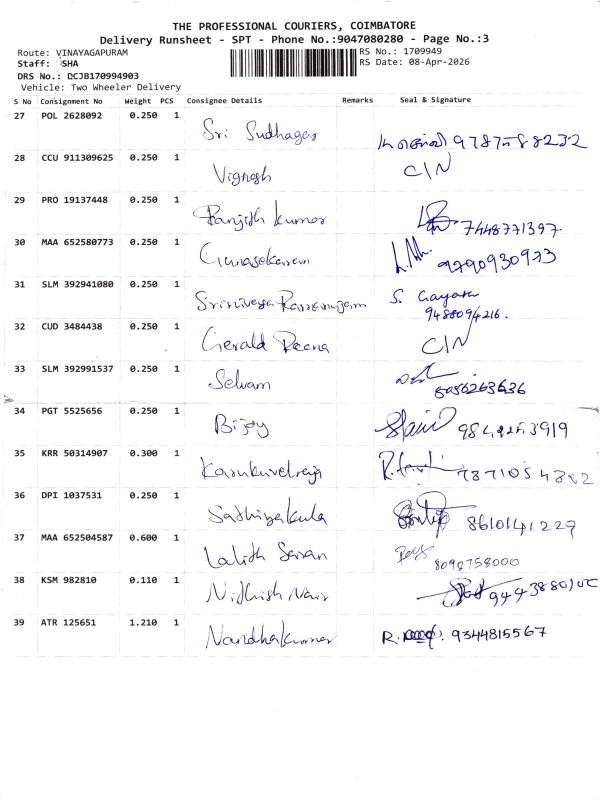 THE PROFESSIONAL COURIERS, COIMBATORE
Delivery Runsheet - SPT - Phone No.:9047080280 - Page No.:3
Route: VINAYAGAPURAM RS No.: 1709949
Staff: SHA RS Date: 08-Apr-2026
DRS No.: DCJB170994903
Vehicle: Two Wheeler Delivery
S No Consignment No Weight PCS Consignee Details Remarks Seal & Signature
27 POL 2628092 0.250 1
Sri Sudhager 9787588232
28 CCU 911309625 0.250 1 C/N
Vignesh
29 PRO 19137448 0.250 1
Ranjith Kumar 7448771397.
30 MAA 652580773 0.250 1
Gunasekaren 9790930973
31 SLM 392941080 0.250 1 S. Gayatri
Srinivasa Ramanujam 9488094216.
32 CUD 3484438 0.250 1
Gerald Reena C/N
33 SLM 392991537 0.250 1
Selvam 8056263636
34 PGT 5525656 0.250 1
Bijoy
35 KRR 50314907 0.300 1
Karukuvelraja
36 DPI 1037531 0.250 1
Sathiyakula 8610141229
37 MAA 652504587 0.600 1
Lalith Saran 8098758000
38 KSM 982810 0.110 1
Nidhish Nair
39 ATR 125651 1.210 1
Nandhakumar R. 9344815567